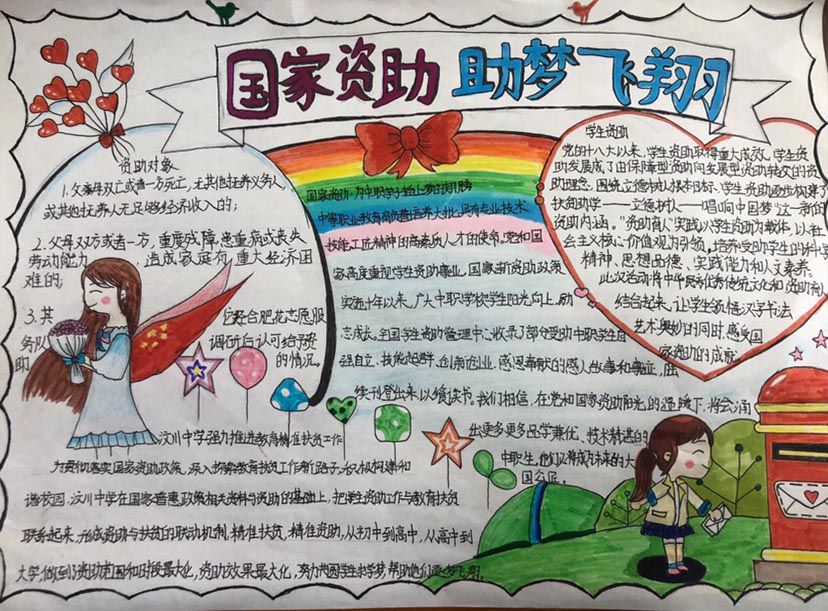 国家资助 助梦飞翔
资助对象
1.父母双亡或者一方死亡,无其他抚养义务人,
或其他抚养人无足够经济收入的;
2.父母双方或者一方,重度残障,患重病或丧失
劳动能力,造成家庭有重大经济困
难的;
3.其 经合肥花志愿服
务队 调研后认可给予资
助 的情况。
国家资助:为中职学子插上梦的翅膀
中等职业教育肩负着培养大批具有专业技术
技能,工匠精神的高素质人才的使命。党和国
家高度重视学生资助事业,国家新资助政策
实施十年以来,广大中职学校学生阳光向上,励
志成长。全国学生资助管理中心收录了部分受助中职学生自
强自立、技能超群、创新创业、感恩奉献的感人故事和事迹,陆
续刊登出来以飨读书。我们相信,在党和国家资助阳光的温暖下,将会涌
出更多更多品学兼优、技术精进的
中职生,他们必将成为未来的大
国工匠。
学生资助
党的十八大以来,学生资助取得重大成效,学生资
助发展成了由保障型资助向发展型资助转变的资
助理念。围绕立德树人根本目标,学生资助逐步构建了
扶贫助学——立德树人——唱响中国梦”这一新的
资助内涵。“资助育人”实践以学生资助为载体,以社
会主义核心价值观为引领,培养受助学生的科学
精神、思想品德、实践能力和人文素养。
此次活动将中华民族优秀传统文化和资助育人
结合起来,让学生领悟汉字书法
艺术奥妙的同时,感受国
家资助的成就。
汶川中学强力推进教育精准扶贫工作
为贯彻落实国家资助政策,深入探索教育扶贫工作新路子,积极构建和
谐校园,汶川中学在国家普惠政策相关资料与资助的基础上,把学生资助工作与教育扶贫
联系起来,形成资助与扶贫的联动机制,精准扶贫,精准资助,从初中到高中,从高中到
大学,做到了资助范围和时段最大化,资助效果最大化,努力共圆学生求学梦,帮助他们逐梦飞翔。